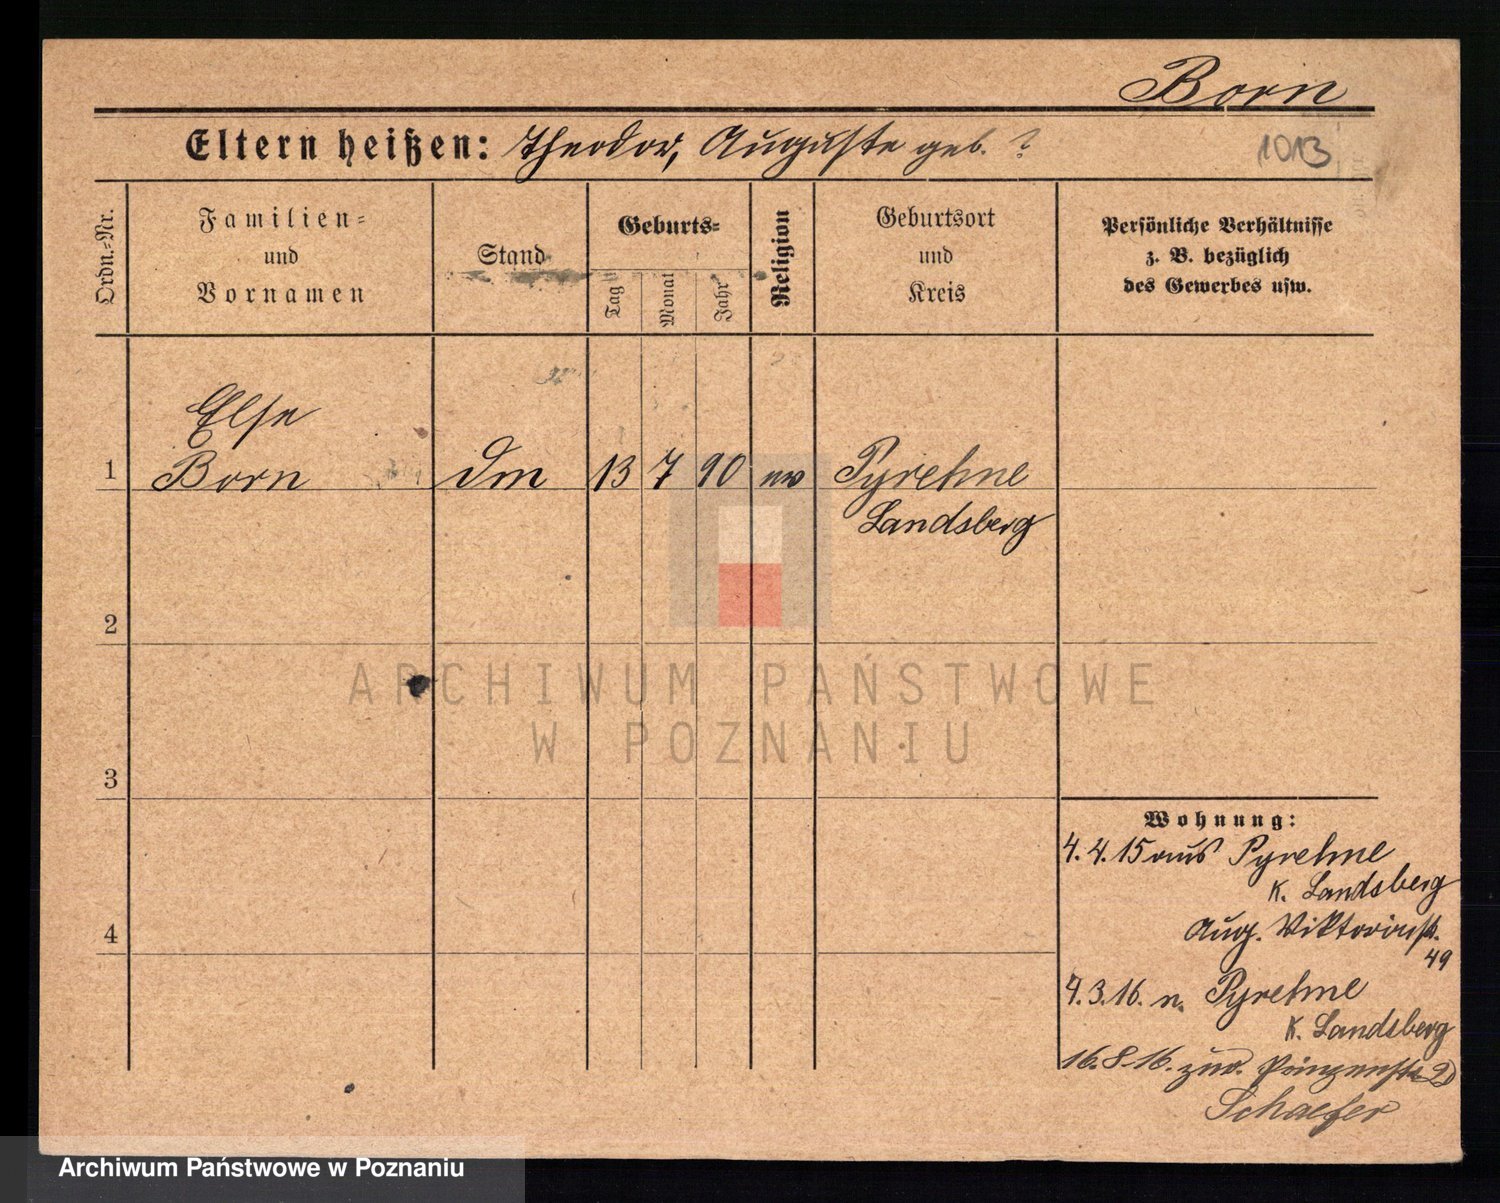 Born
Eltern heißen: Theodor, Auguste geb. ?
1013
Ordn.=Nr.
Familien=
und
Vornamen
Stand
Geburts=
Tag
Monat
Jahr
Religion
Geburtsort
und
Kreis
Persönliche Verhältnisse
z. B. bezüglich
des Gewerbes usw.
Else
1 Born 13 7 90 ev Pyrehne
Landsberg
2
3
4
Wohnung:
4.4.15 aus Pyrehne
K. Landsberg
Aug. Viktoriastr.
49
4.3.16. n. Pyrehne
K. Landsberg
16.8.16. zur. Prinzenstr.
Schaefer
ARCHIWUM PAŃSTWOWE
W POZNANIU
Archiwum Państwowe w Poznaniu